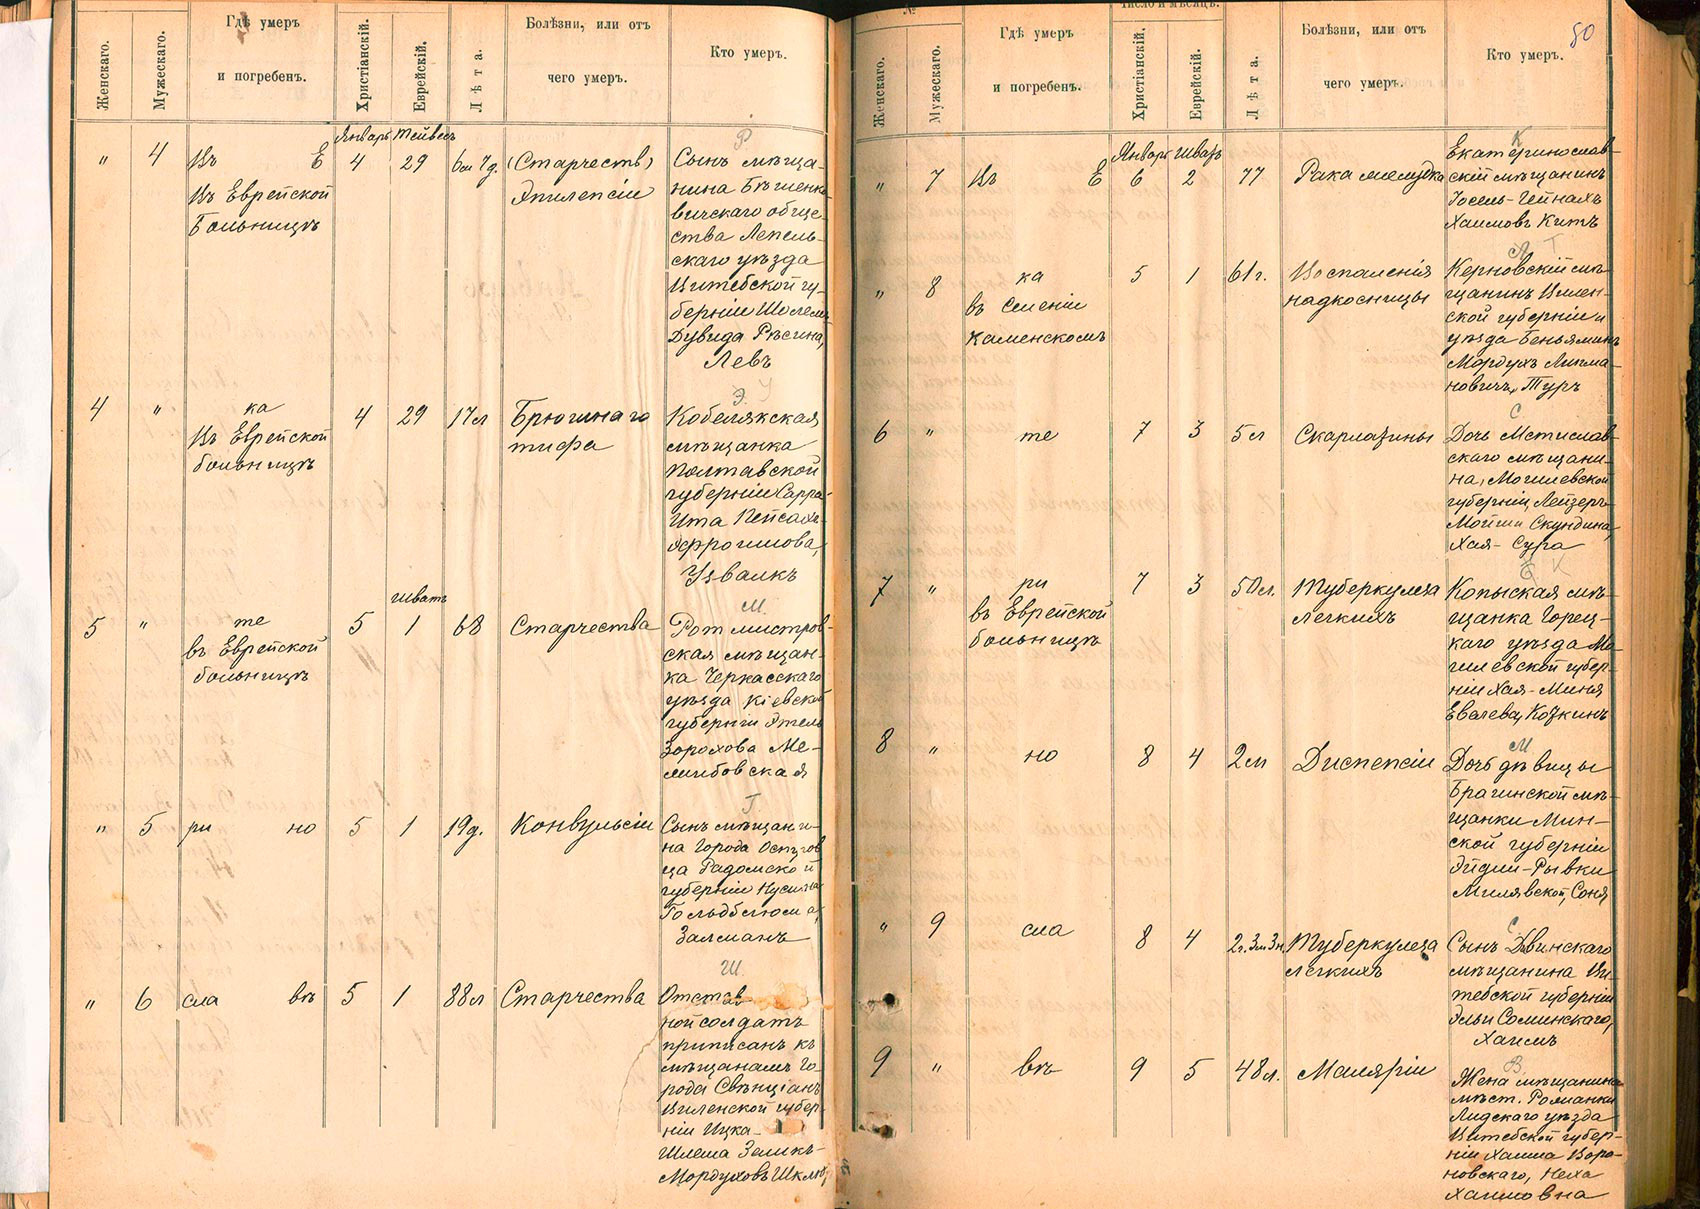 Женскаго.
Мужескаго.
Гдѣ умеръ
и погребенъ.
Христіанскій.
Еврейскій.
Лѣта.
Болѣзни, или отъ
чего умеръ.
Кто умеръ.
Январь Тейвесъ
" 4 Въ Е 4 29 6м 7д. (Старчеств)
Въ Еврейской Эпилепсіи
Больницѣ
Р
Сынъ мѣща-
нина Бѣшенко
вичскаго обще-
ства Лепель-
скаго уѣзда
Витебской гу-
берніи Шолема
Дувида Рѣсина,
Левъ
4 " ка 4 29 17л Брюшнаго
Въ Еврейской тифа
больницѣ
Э. У
Кобелякская
мѣщанка
Полтавской
губерніи Сарра-
Ита Пейсахъ-
Эфроимова,
Узвалкъ
Шватъ
5 " те 5 1 68 Старчества
въ Еврейской
больницѣ
М.
Ротмистров-
ская мѣщан-
ка Черкасскаго
уѣзда Кіевской
губерніи Этель
Зорохова Ме-
лимбовская
" 5 ри но 5 1 19д. Конвульсіи
Г.
Сынъ мѣщани-
на Города Остров
ца Радомской
губерніи Нусина
Гольдблюма,
Залманъ
" 6 сла въ 5 1 88л Старчества
Ш.
Отстав
ной солдатъ
приписан къ
мѣщанамъ Го-
рода Свѣнцянъ
Виленской губер
ніи Ицка-
Шлема Зеликъ-
Мордуховъ Шкляр
№
Число и мѣсяцъ.
50
Женскаго.
Мужескаго.
Гдѣ умеръ
и погребенъ.
Христіанскій.
Еврейскій.
Лѣта.
Болѣзни, или отъ
чего умеръ.
Кто умеръ.
Январь Шватъ
" 7 Въ Е 6 2 77 Рака желудка
К
Екатеринослав-
скій мѣщанинъ
Іосель-Гейнахъ
Хаимовъ Китъ
" 8 ка 5 1 61г. Воспаленія
въ селеніи надкосницы
Каменскомъ
Л Т
Керновскій мѣ-
щанинъ Вилен-
ской губерніи и
уѣзда Беньяминъ
Мордухъ Ликма-
новичъ, Туръ
6 " те 7 3 5л Скарлатины
С.
Дочь Мстислав-
скаго мѣщани-
на, Могилевской
губерніи, Лейзеръ-
Мойши Скундина,
Хая-Сура
7 " ри 7 3 50л. Туберкулеза
въ Еврейской легкихъ
больницѣ
К
Копыская мѣ-
щанка Горец-
каго уѣзда Мо-
гилевской губер-
ніи Хая-Миня
Евалева, Козкинъ
8 " но 8 4 2м Диспепсіи
М
Дочь дѣвицы
Брагинской мѣ-
щанки Мин-
ской губерніи
Эйдли-Рывки
Милявской, Соня
" 9 сла 8 4 2г. 3м 3н. Туберкулеза
легкихъ
С.
Сынъ Двинскаго
мѣщанина Ви-
тебской губерніи
Эльи Соминскаго,
Хаимъ
9 " въ 9 5 48л. Маляріи
В
Жена мѣщанина
мѣст. Романки
Лидскаго уѣзда
Витебской губер-
ніи Хаима Воро-
новскаго, Неха
Хаимовна